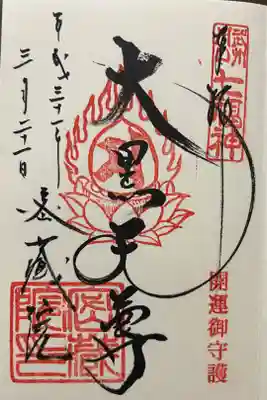 奉拝
武州
七福神
開運御守護
大黒天尊
平成三十一年
三月二十一日
密蔵院